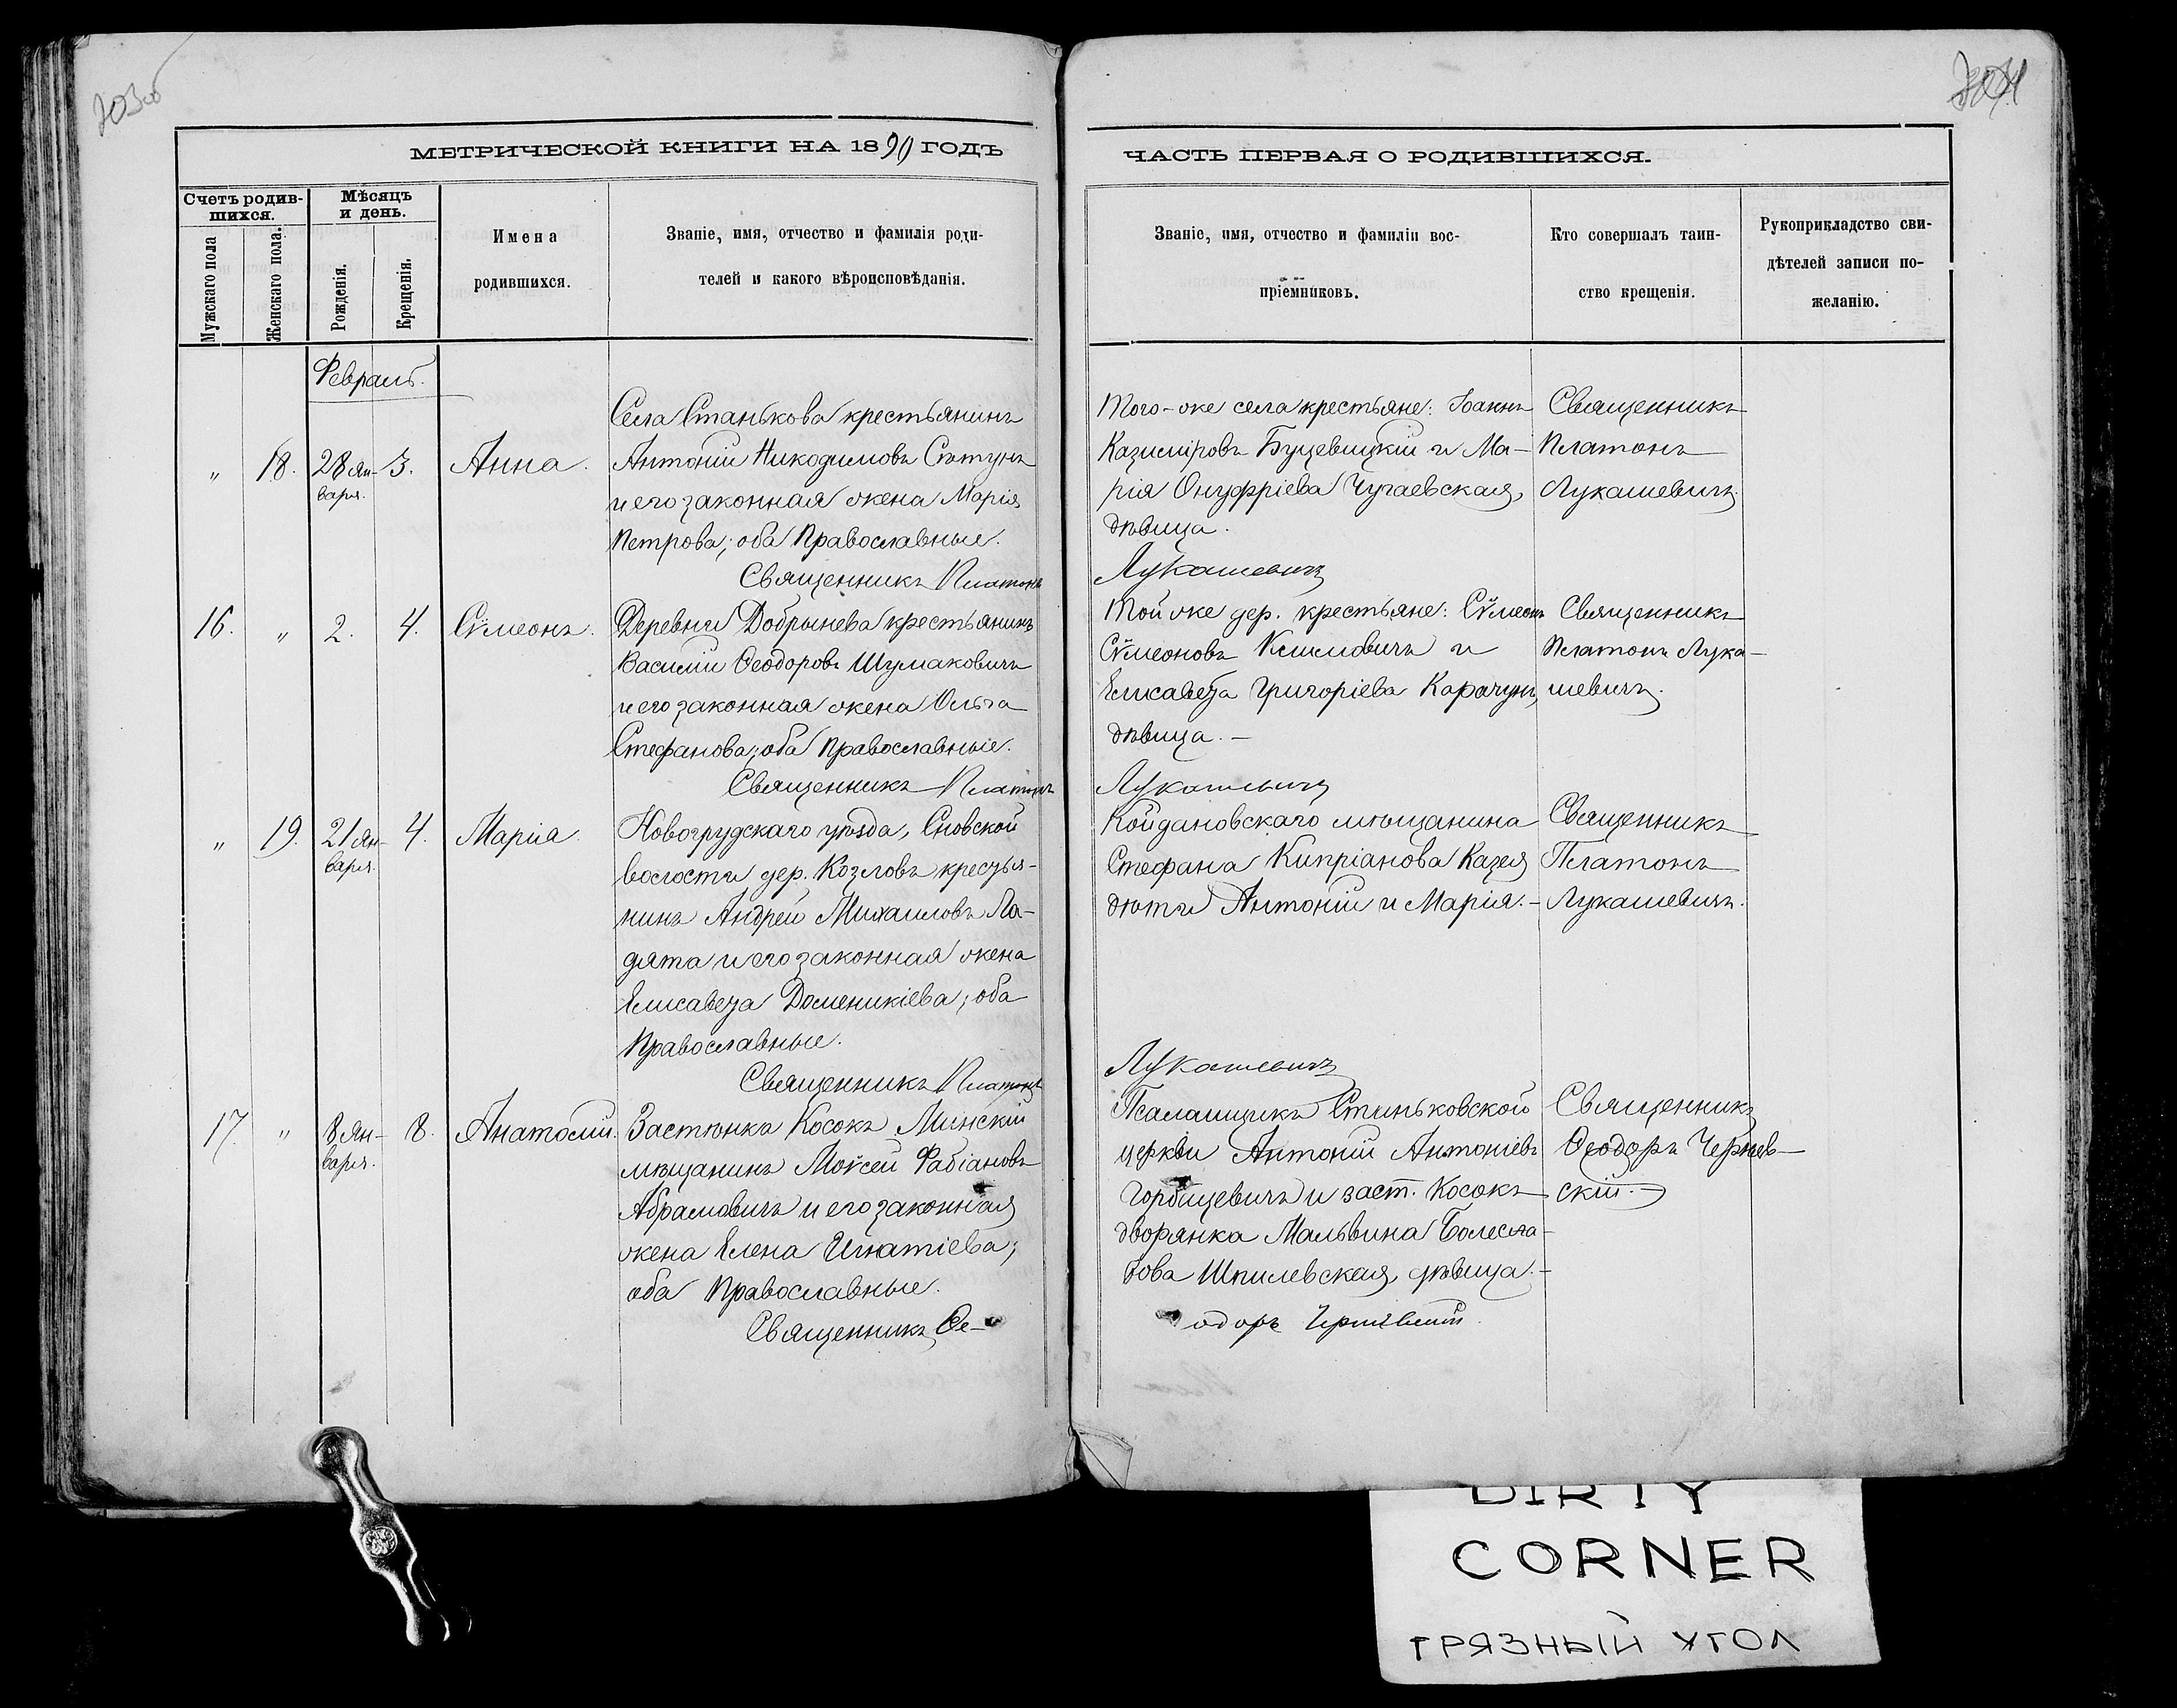 203об
МЕТРИЧЕСКОЙ КНИГИ НА 1890 ГОДЪ
Счетъ родив-
шихся.
Мужскаго пола
Женскаго пола.
Мѣсяцъ
и день.
Рожденія.
Крещенія.
Имена
родившихся.
Званіе, имя, отчество и фамилія роди-
телей и какого вѣроисповѣданія.
Февраль.
„ 18. 28 Ян-
варя. 3. Анна.
Села Станькова крестьянинъ
Антоній Никодимовъ Статунъ
и его законная жена Марія
Петрова; оба Православные.
Священникъ Платонъ
16. „ 2. 4. Сѵмеонъ.
Деревни Добрынева крестьянинъ
Василій Ѳеодоровъ Шумаковичъ
и его законная жена Ольга
Стефанова; оба Православные.
Священникъ Платонъ
„ 19. 21 Ян-
варя. 4. Марія.
Новогрудскаго уѣзда, Сновской
волости дер. Козловъ крестья-
нинъ Андрей Михаиловъ Ла-
дята и его законная жена
Елисавета Доменикіева; оба
Православные.
Священникъ Платонъ
17. „ 8 Ян-
варя. 8. Анатолій.
Застѣнка Косокъ Минскій
мѣщанинъ Моѵсей Фабіановъ
Абрамовичъ и его законная
жена Елена Игнатіева;
оба Православные.
Священникъ Ѳе-
ЧАСТЬ ПЕРВАЯ О РОДИВШИХСЯ.
Званіе, имя, отчество и фамиліи вос-
пріемниковъ.
Кто совершалъ таин-
ство крещенія.
Рукоприкладство сви-
дѣтелей записи по-
желанію.
Того-же села крестьяне: Іоаннъ
Казиміровъ Буцевицкій и Ма-
рія Онуфріева Чугаевская,
дѣвица.
Лукашевичъ
Священникъ
Платонъ
Лукашевичъ.
Той же дер. крестьяне: Сѵмеонъ
Сѵмеоновъ Климовичъ и
Елисавета Григоріева Карачунъ,
дѣвица. —
Лукашевичъ
Священникъ
Платонъ Лука-
шевичъ.
Койдановскаго мѣщанина
Стефана Кипріанова Казея
дѣти Антоній и Марія. —
Лукашевичъ
Священникъ
Платонъ
Лукашевичъ.
Псаломщикъ Станьковской
церкви Антоній Антоніевъ
Горбацевичъ и заст. Косокъ
дворянка Мальвина Болесла-
вова Шпилевская, дѣвица. —
одоръ Чернявскій.
Священникъ
Ѳеодоръ Черняв-
скій.
DIRTY
CORNER
ГРЯЗНЫЙ УГОЛ